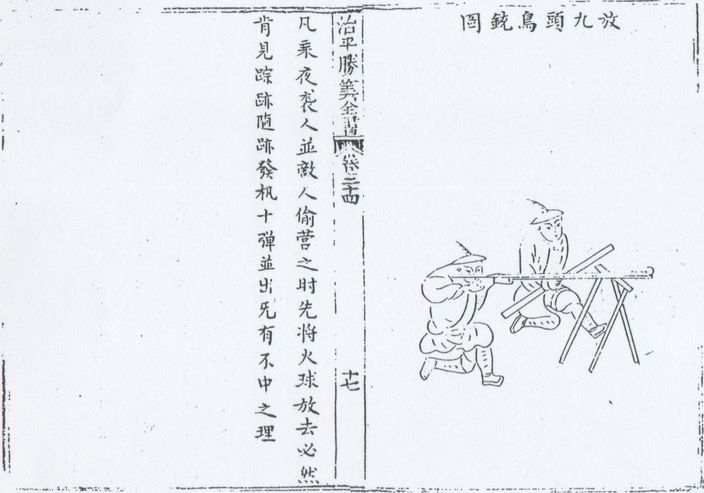 放九頭鳥銃圖
治平勝筭全書 卷二十四 十七
凡乘夜袭人並敵人偷营之时先将火球放去必然
肯見踪跡隨跡發机十弹並出旡有不中之理